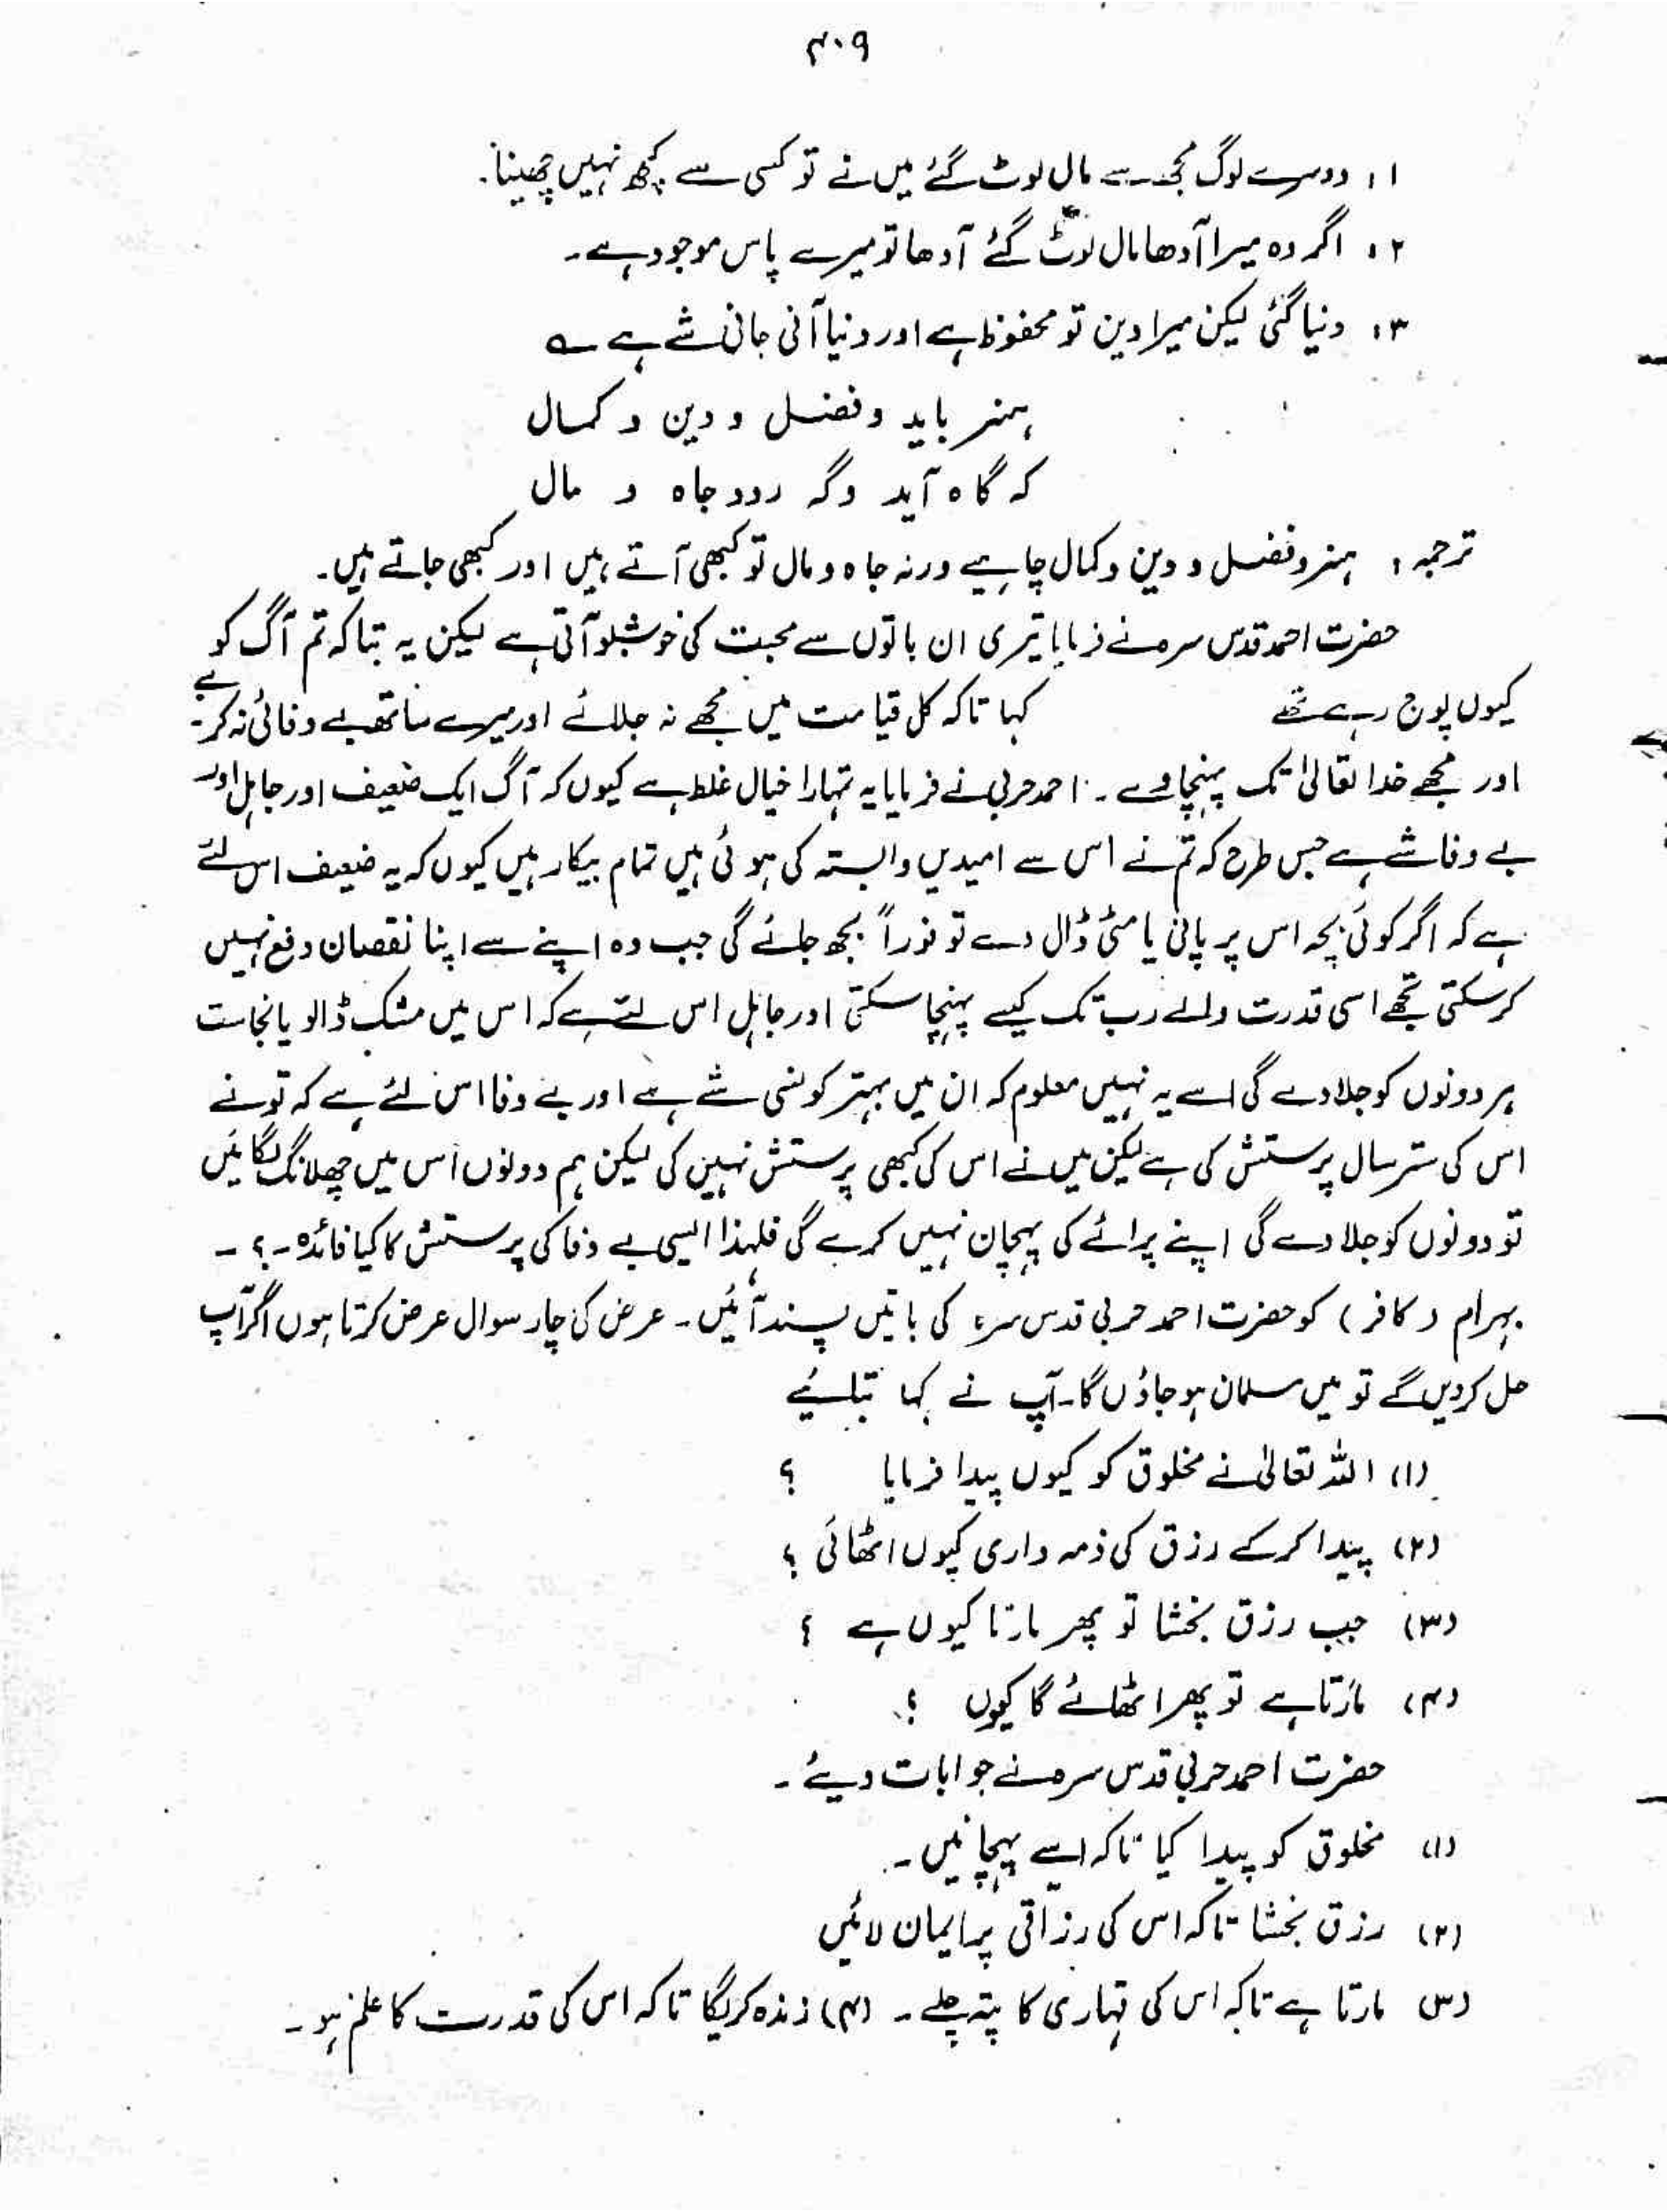 ۴۰۹
۱: دوسرے لوگ مجھ سے مال لوٹ گئے میں نے تو کسی سے کچھ نہیں چھینا.
۲: اگر وہ میرا آدھا مال لوٹ گئے آدھا تو میرے پاس موجود ہے۔
۳: دنیا گئی لیکن میرا دین تو محفوظ ہے اور دنیا آنی جانی شے ہے ؎
ہنر باید و فضل و دین و کمال
کہ گاہ آید و گہ رود جاہ و مال
ترجمہ: ہنر و فضل و دین و کمال چاہیے ورنہ جاہ و مال تو کبھی آتے ہیں اور کبھی جاتے ہیں۔
حضرت احمد قدس سرہ نے فرمایا تیری ان باتوں سے محبت کی خوشبو آتی ہے لیکن یہ بتا کہ تم آگ کو
کیوں پوج رہے تھے کہا تاکہ کل قیامت میں مجھے نہ جلائے اور میرے ساتھ بے وفائی نہ کرے۔
اور مجھے خدا تعالیٰ تک پہنچاوے۔ احمد حربی نے فرمایا یہ تمہارا خیال غلط ہے کیوں کہ آگ ایک ضعیف اور جاہل اور
بے وفا شے ہے جس طرح کہ تم نے اس سے امیدیں وابستہ کی ہوئی ہیں تمام بیکار ہیں کیوں کہ یہ ضعیف اس لئے
ہے کہ اگر کوئی بچہ اس پر پانی یا مٹی ڈال دے تو فوراً بجھ جائے گی جب وہ اپنے سے اپنا نقصان دفع نہیں
کر سکتی تجھے اسی قدرت والے رب تک کیسے پہنچا سکتی اور جاہل اس لئے ہے کہ اس میں مشک ڈالو یا نجاست
ہر دونوں کو جلادے گی اسے یہ نہیں معلوم کہ ان میں بہتر کونسی شے ہے اور بے وفا اس لئے ہے کہ تو نے
اس کی ستر سال پرستش کی ہے لیکن میں نے اس کی کبھی پرستش نہیں کی لیکن ہم دونوں اس میں چھلانگ لگائیں
تو دونوں کو جلا دے گی اپنے پرائے کی پہچان نہیں کرے گی فلہذا ایسی بے وفا کی پرستش کا کیا فائدہ۔؟۔
بہرام (کافر) کو حضرت احمد حربی قدس سرہ کی باتیں پسند آئیں۔ عرض کی چار سوال عرض کرتا ہوں اگر آپ
حل کر دیں گے تو میں مسلمان ہو جاؤں گا۔ آپ نے کہا بتلئیے
(۱) اللہ تعالیٰ نے مخلوق کو کیوں پیدا فرمایا ؟
(۲) پیدا کر کے رزق کی ذمہ داری کیوں اٹھائی ؟
(۳) جب رزق بخشا تو پھر مارتا کیوں ہے ؟
(۴) مارتا ہے تو پھر اٹھائے گا کیوں ؟
حضرت احمد حربی قدس سرہ نے جوابات دیئے۔
(۱) مخلوق کو پیدا کیا تاکہ اسے پہچانیں۔
(۲) رزق بخشا تاکہ اس کی رزاقی پر ایمان لائیں
(۳) مارتا ہے تاکہ اس کی قہاری کا پتہ چلے۔ (۴) زندہ کریگا تاکہ اس کی قدرت کا علم ہو۔